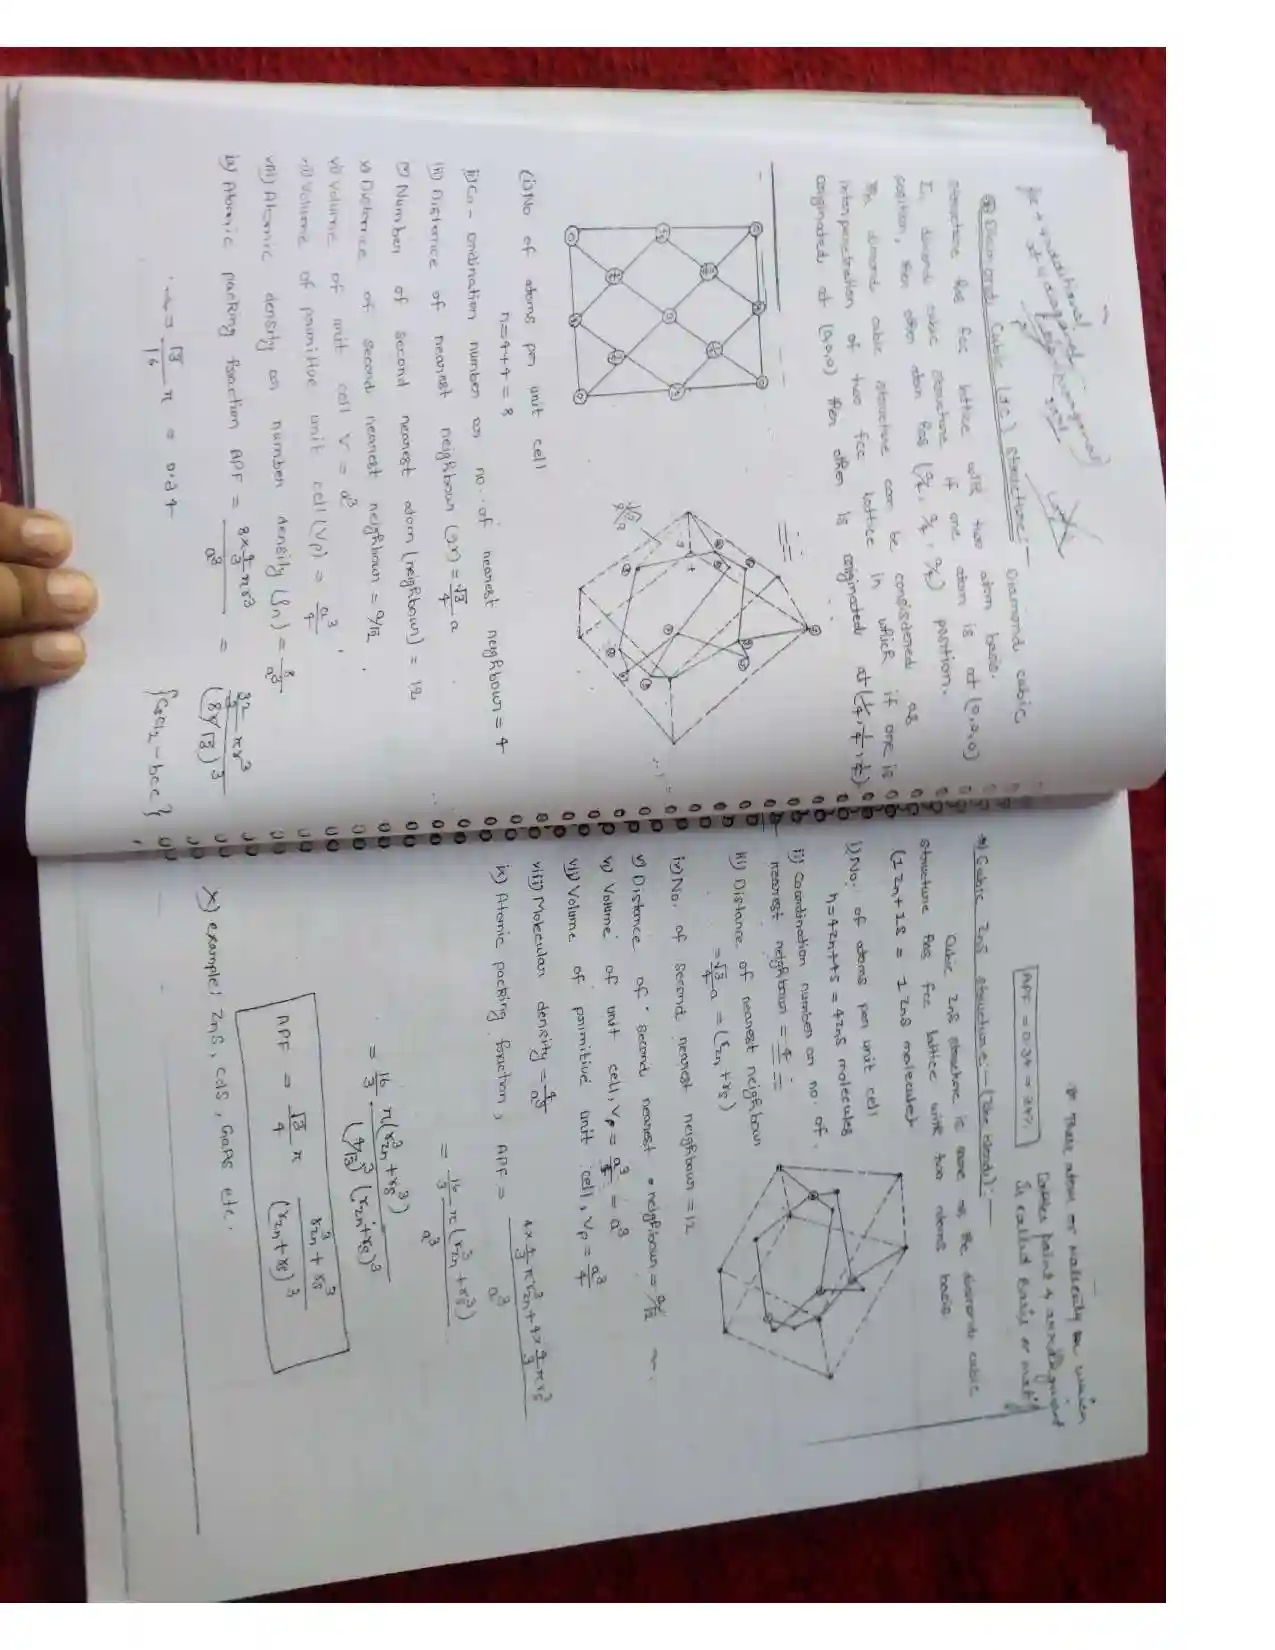 fcc + 4 additional
at 4 diagonal
* Diamond Cubic (dc) structure :- Diamond cubic
structure has fcc lattice with two atom basis.
In dimond cubic structure if one atom is at (0,0,0)
position, then other atom has (a/4, a/4, a/4) position.
The dimond cubic structure can be considered as
interpenetration of two fcc lattice in which if one is
originated at (0,0,0) then other is originated at (1/4, 1/4, 1/4)
(i) No of atoms per unit cell
n = 4+4 = 8
ii) Co-ordination number or no. of nearest neighbour = 4
iii) Distance of nearest neighbour (2r) = √3/4 a
iv) Number of second nearest atom (neighbour) = 12
v) Distance of second nearest neighbour = a/√2
vi) Volume of unit cell V = a³
vii) Volume of primitive unit cell (Vp) = a³/4
viii) Atomic density or number density (ρn) = 8/a³
ix) Atomic packing fraction APF = 8×4/3 πr³ / a³ = 32/3 πr³ / (8r/√3)³
= √3/16 π = 0.34
{CsCl₂ - bcc}
* These atom or molecules on which
is called basis or
APF = 0.34 = 34%
*) Cubic ZnS structure :- (Zinc blende) :-
Cubic ZnS structure is same as the dimond cubic
structure has fcc lattice with two atoms basis
(1 Zn + 1S = 1 ZnS molecule)
i) No. of atoms per unit cell
n = 4Zn + 4S = 4ZnS molecules
ii) Coordination number or no. of
nearest neighbour = 4
iii) Distance of nearest neighbour
= √3/4 a = (rZn + rS)
iv) No. of second nearest neighbour = 12
v) Distance of second nearest neighbour = a/√2
vi) Volume of unit cell, Vp = a³/1 = a³
vii) Volume of primitive unit cell, Vp = a³/4
viii) Molecular density = 4/a³
ix) Atomic packing fraction, APF = 4×4/3 πr³Zn + 4×4/3 πrS³ / a³
= 16/3 π(r³Zn + rS³) / a³
= 16/3 π(r³Zn + rS³) / (4/√3)³ (rZn + rS)³
APF = √3/4 π r³Zn + rS³ / (rZn + rS)³
x) example: ZnS, CdS, GaAs etc.